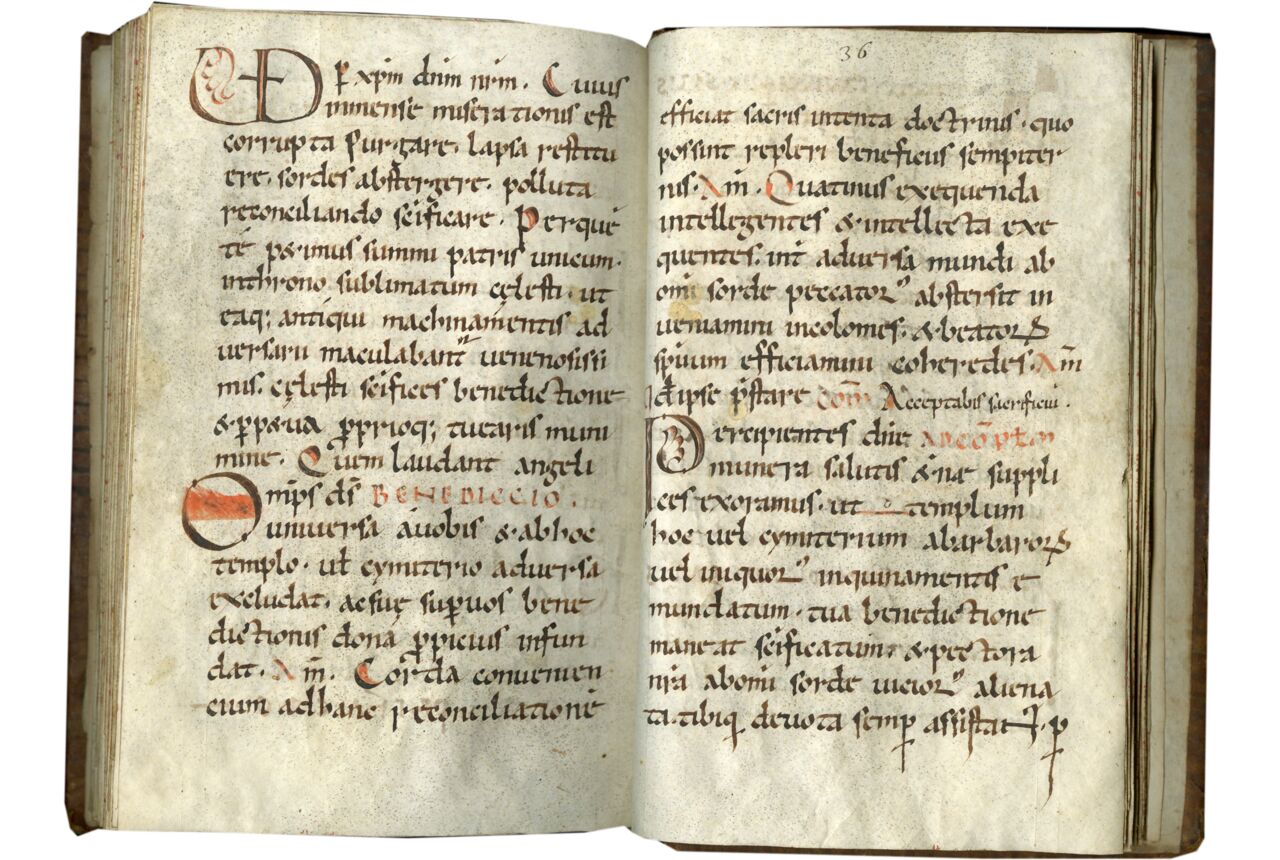 VD p xpm dnm nrm. Cuius
inmense miserationis est
corrupta purgare. lapsa restitu
ere. sordes abstergere. polluta
reconciliando scificare. Per que
te petimus summi patris unicum.
in throno sublimatum cęlesti. ut
eaq; antiqui machinamentis ad
versarii maculabant ueneno sissi
mis. cęlesti scifices benedictione
& ppetua pprioq; tuearis muni
mine. Quem laudant angeli
Omps ds BENEDICCIO.
universa a uobis & ab hoc
templo. ul cymiterio adversa
excludat. ac suę sup uos bene
dictionis dona ppicius infun
dat. Am. Corda convenien
cium ad hanc reconciliatione
36
efficiat sacris intenta doctrinis. quo
possint repleri beneficiis sempiter
nis. Am. Quatinus exequenda
intellegentes & intellecta exe
quentes. int adversa mundi ab
omi sorde peccator abstersit in
ueniamini incolomes. & beatorum
spiuum efficiamini coheredes. Am
d ipse pstare com Acceptabis sacrificiu.
Percipientes dne AD COPLEN
munera salutis & na suppli
ces exoramus. ut templum
hoc uel cymiterium a barbarorum
uel iniquor inquinamentis e
mundatum. tua benedictione
maneat scificatum. & pectora
nra ab omi sorde uicior aliena
ta. tibiq devota semp assistant. p